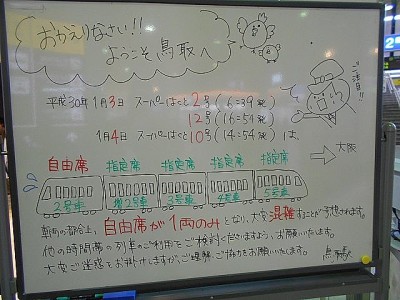 おかえりなさい!!
ようこそ鳥取へ
ご注目!!
平成30年1月3日 スーパーはくと2号(6:39発)
12号(16:54発)
1月4日 スーパーはくと10号(14:54発)は、
自由席 指定席 指定席 指定席 指定席
→大阪
2号車 増2号車 3号車 4号車 5号車
車両の都合上、自由席が1両のみとなり、大変混雑することが予想されます。
他の時間帯の列車のご利用をご検討くださいますよう、お願いいたします。
大変ご迷惑をお掛けしますが、ご理解、ご協力をお願いいたします。
鳥取駅